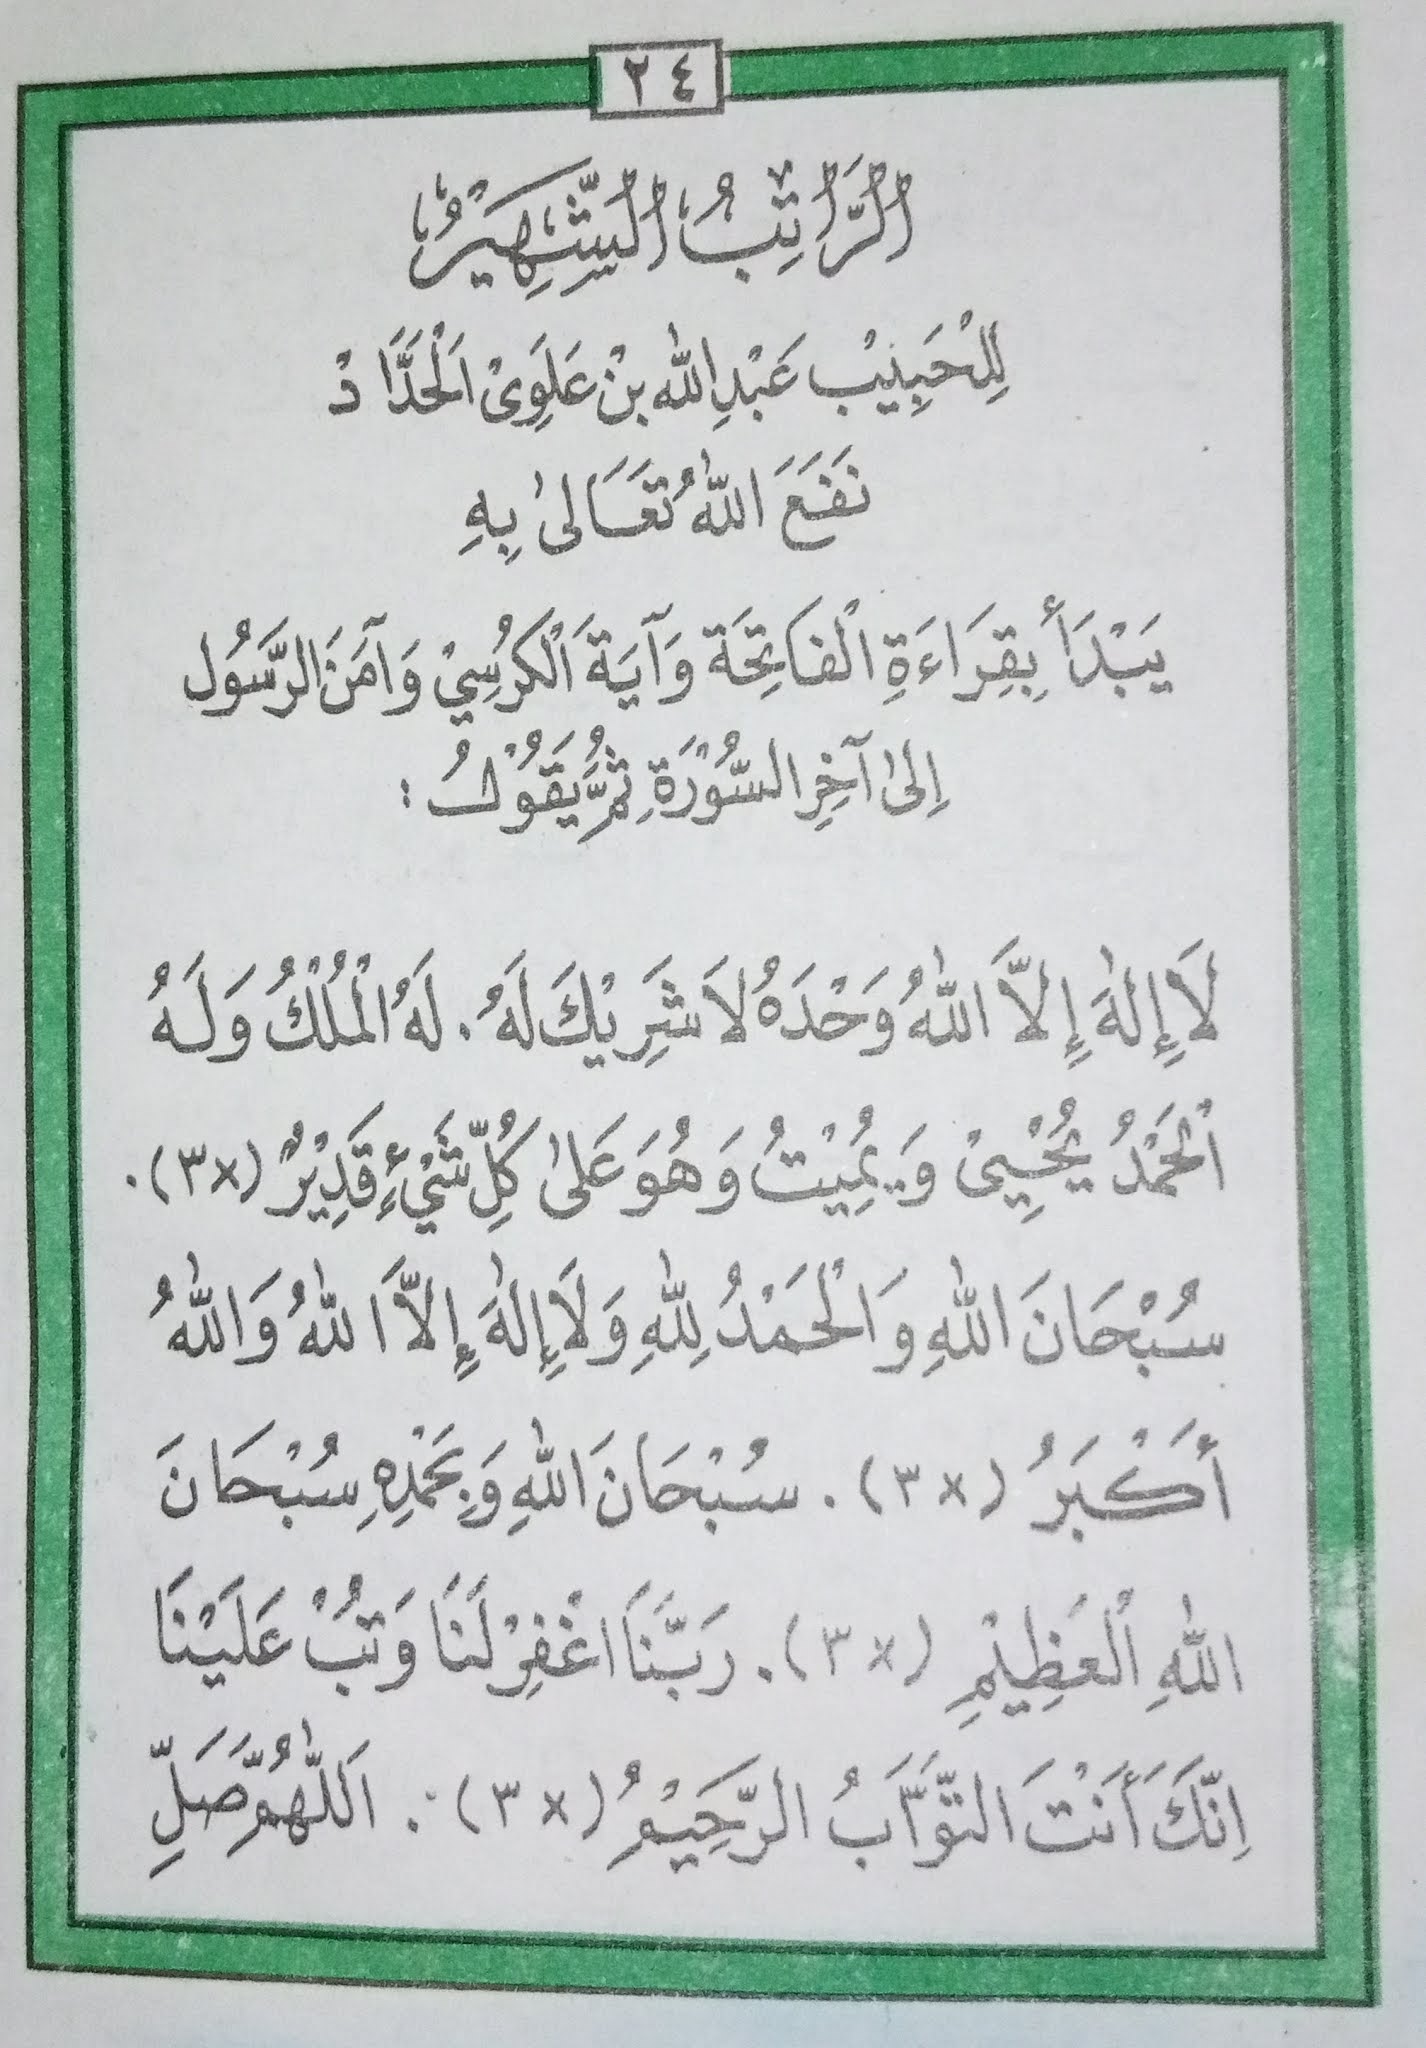 ٢٤
اَلرَّاتِبُ الشَّهِيْرُ
لِلْحَبِيْبِ عَبْدِ اللّٰه بنْ عَلَوِىْ اَلْحَدَّادْ
نَفَعَ اللّٰهُ تَعَالىٰ بِهِ
يَبْدَأُ بِقِرَاءَةِ الْفَاتِحَة وَآيَةَ اَلْكُرْسِيْ وَآمَنَ الرَّسُول
اِلىٰ آخِرِ السُّوْرَةِ ثُمَّ يَقُوْلُ :
لَا إِلٰهَ إِلاَّ اللّٰهُ وَحْدَهُ لاَ شَرِيْكَ لَهُ . لَهُ الْمُلْكُ وَلَهُ
اْلحَمْدُ يُحْيِىْ وَيُمِيْتُ وَهُوَ عَلىٰ كُلِّ شَيْءٍ قَدِيْرٌ (×٣).
سُبْحَانَ اللّٰهِ وَالْحَمْدُ لِلّٰهِ وَلَا إِلٰهَ إِلاَّ اللّٰهُ وَاللّٰهُ
أَكْبَرُ (×٣). سُبْحَانَ اللّٰهِ وَبِحَمْدِهِ سُبْحَانَ
اللّٰهِ اْلعَظِيْمِ (×٣). رَبَّنَا اغْفِرْ لَنَا وَتُبْ عَلَيْنَا
اِنَّكَ أَنْتَ التَّوَّابُ الرَّحِيْمُ (×٣). اَللّٰهُمَّ صَلِّ